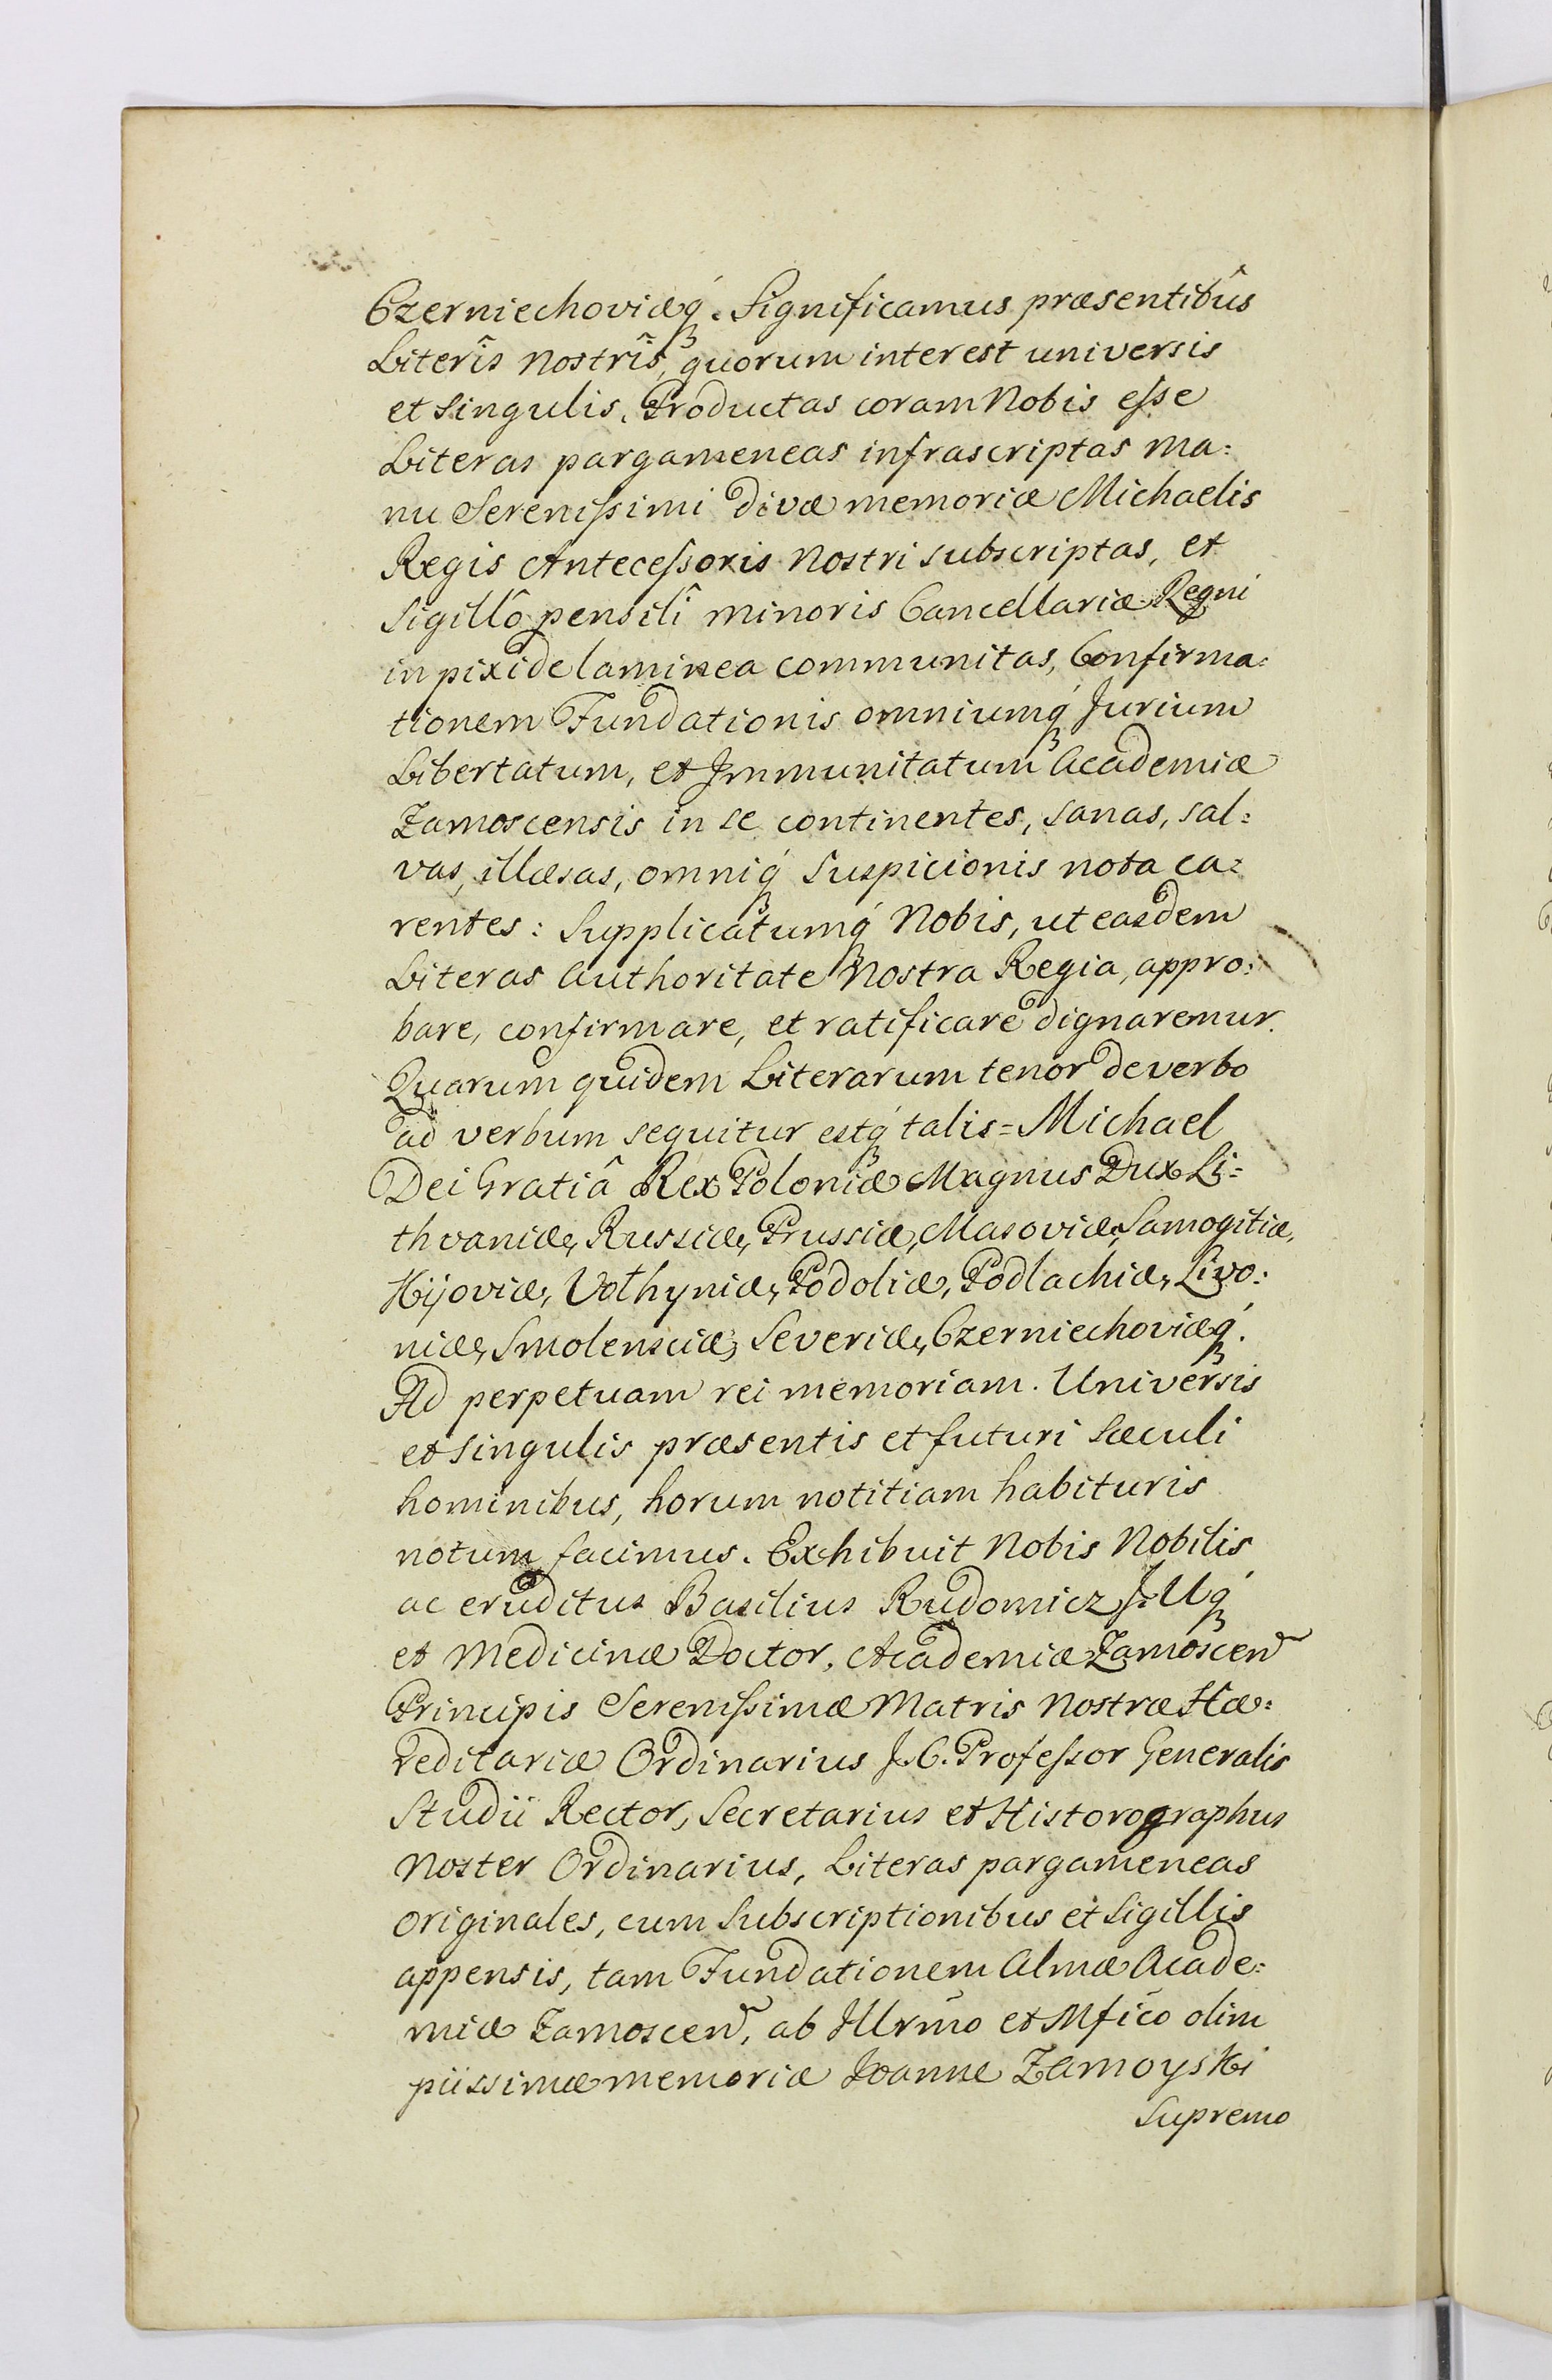 Czerniechoviæq́ꝫ. Significamus præsentibûs
Literîs Nostrîs, quorum interest universis
et singulis. Productas coram Nobis eſse
Literas pargameneas infrascriptas ma:
nu Sereniſsimi Divæ memoriæ Michaelis
Regis Anteceſsoris Nostri subscriptas, et
Sigillô pensilî minoris Cancellariæ Regni
in pixide laminea communitas, Confirma:
tionem Fundationis omniumq́ꝫ Jurium
Libertatum, et Immunitatum Academiæ
Zamoscensis in se continentes, sanas, sal:
vas, illæsas, omniq́ꝫ suspicionis nota ca:
rentes: Supplicatumq́ꝫ Nobis, ut easdem
Literas Authoritate Nostra Regia, appro:
bare, confirmare, et ratificare dignaremur.
Quarum quidem Literarum tenor de verbo
ad verbum sequitur estq́ꝫ talis = Michael
Dei Gratiâ Rex Poloniæ Magnus Dux Li:
thvaniæ, Russiæ, Prussiæ, Masoviæ, Samogitiæ,
Kijoviæ, Volhyniæ, Podoliæ, Podlachiæ, Livo:
niæ, Smolensciæ, Severiæ, Czerniechoviæq́ꝫ.
Ad perpetuam rei memoriam. Universis
et singulis præsentis et futuri sæculi
hominibus, horum notitiam habituris
notum facimus. Exhibuit Nobis Nobilis
ac eruditus Basilius Rudomicz J. Uq́ꝫ
et Medicinæ Doctor, Academiæ Zamoscen̄
Principis Sereniſsimæ Matris Nostræ Hæ:
reditariæ Ordinarius J. C. Profeſsor Generalis
Studii Rector, Secretarius et Historographus
Noster Ordinarius, Literas pargameneas
originales, cum Subscriptionibus et Sigillis
appensis, tam Fundationem Almæ Acade:
miæ Zamoscen̄, ab Illrm̄o et Mfic̄o olim
piissimæ memoriæ Joanne Zamoyski
Supremo